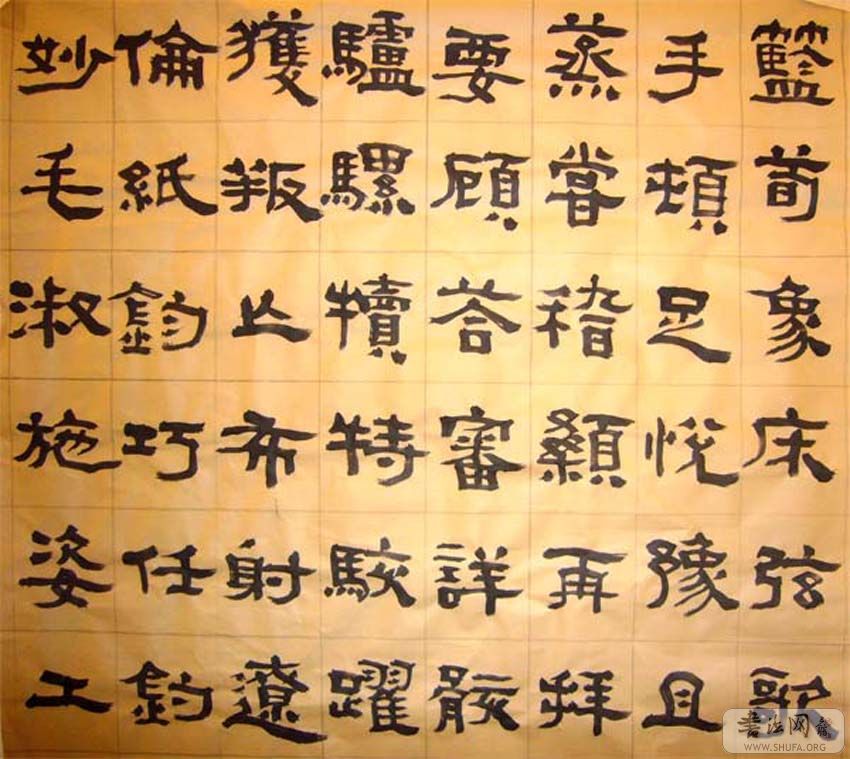 籃荀象床弦歌
手頓足悅豫且
蒸嘗稽顙再拜
要顧荅審詳骸
驢騾犢特駭躍
獲叛亾布射遼
倫紙鈞巧任釣
妙毛淑施姿工
書法网
WWW.SHUFA.ORG